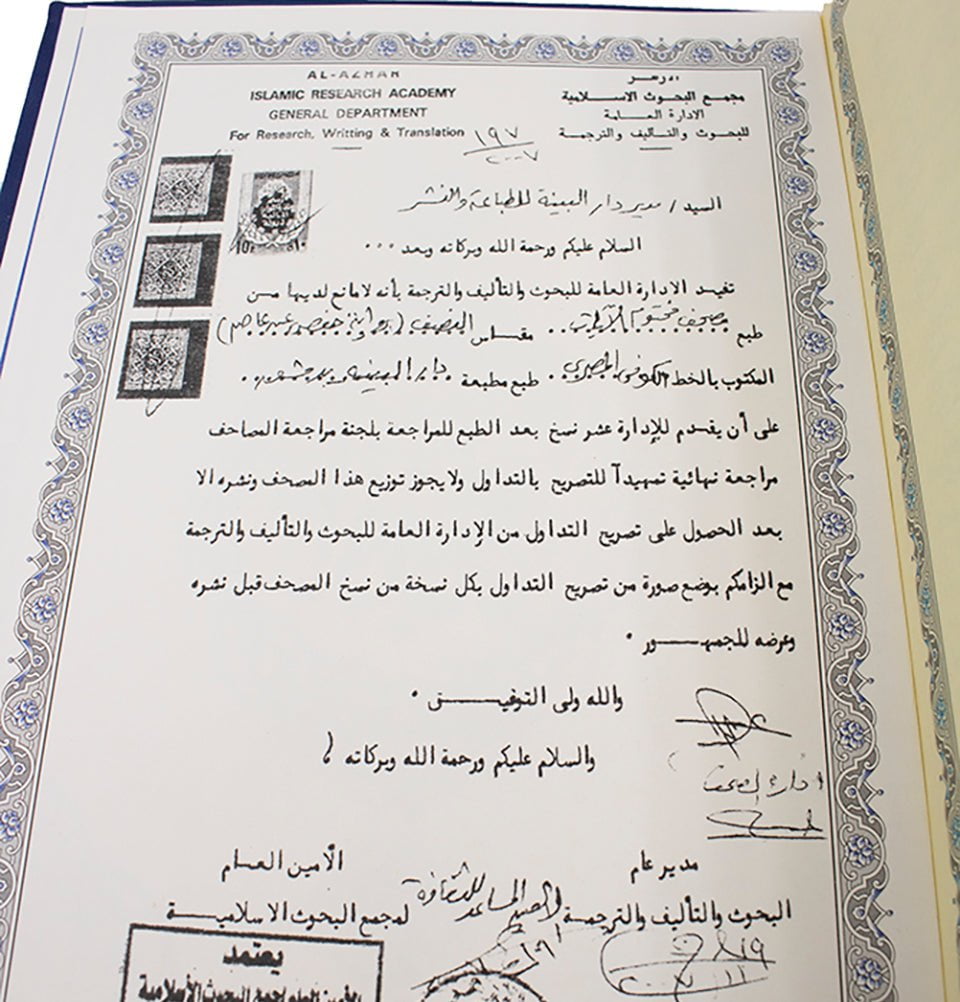 AL-AZHAR
ISLAMIC RESEARCH ACADEMY
GENERAL DEPARTMENT
For Research, Writting & Translation
الأزهر
مجمع البحوث الاسلامية
الادارة العامة
للبحوث والتأليف والترجمة
١٩٧
٢٠٠٧
السيد / مدير دار البينة للطباعة والنشر
السلام عليكم ورحمة الله وبركاته وبعد ...
تفيد الادارة العامة للبحوث والتأليف والترجمة بأنه لامانع لديها من
طبع مصحف مختوم الآيات .. مقاس النصف (رواية حفص عن عاصم)
المكتوب بالخط الكوفى المصرى . طبع مطبعة .
على أن يقدم للإدارة عشر نسخ بعد الطبع للمراجعة بلجنة مراجعة المصاحف
مراجعة نهائية تمهيداً للتصريح بالتداول ولايجوز توزيع هذا المصحف ونشره الا
بعد الحصول على تصريح التداول من الإدارة العامة للبحوث والتأليف والترجمة
مع الزامكم بوضع صورة من تصريح التداول بكل نسخة من نسخ المصحف قبل نشره
وعرضه للجمهور .
والله ولى التوفيق .
والسلام عليكم ورحمة الله وبركاته
مدير عام
البحوث والتأليف والترجمة
الأمين العام
المساعد للثقافة
لمجمع البحوث الاسلامية
يعتمد